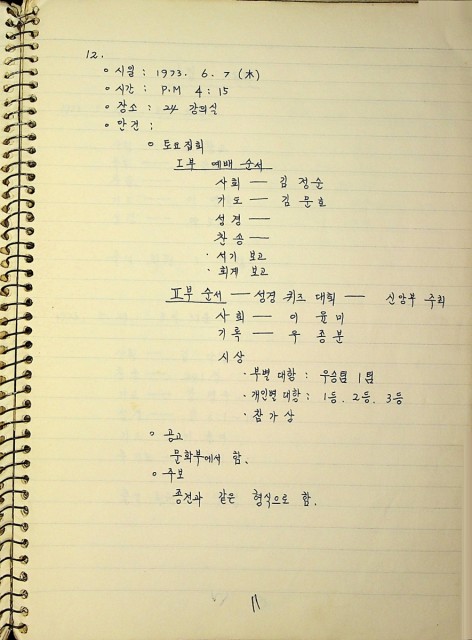 12.
◦ 시일 : 1973. 6. 7 (木)
◦ 시간 : P.M 4 : 15
◦ 장소 : 24 강의실
◦ 안건 :
◦ 토요집회
I부 예배 순서
사회 — 김 정순
기도 — 김 문호
성경 —
찬송 —
· 서기 보고
· 회계 보고
II부 순서 — 성경 퀴즈 대회 — 신앙부 주최
사회 — 이 윤미
기록 — 우 종분
시상
· 부별 대항 : 우승팀 1팀
· 개인별 대항 : 1등. 2등. 3등
· 참가상
◦ 공고
문화부에서 함.
◦ 주보
종전과 같은 형식으로 함.
11